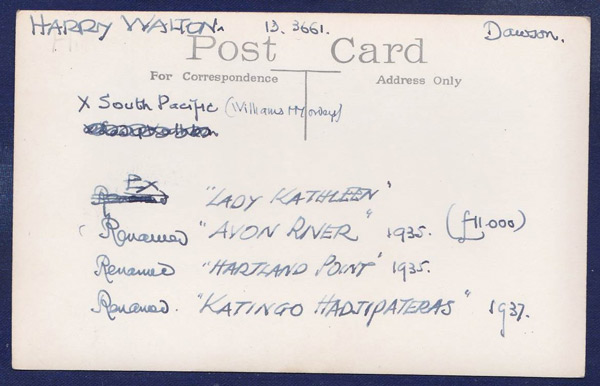 HARRY WALTON. 13. 3661. Dawson.
Post Card
For Correspondence Address Only
X South Pacific (Williams
Ex "LADY KATHLEEN"
Renamed "AVON RIVER" 1935. (£11.000)
Renamed "HARTLAND POINT" 1935.
Renamed. "KATINGO HADJIPATERAS" 1937.